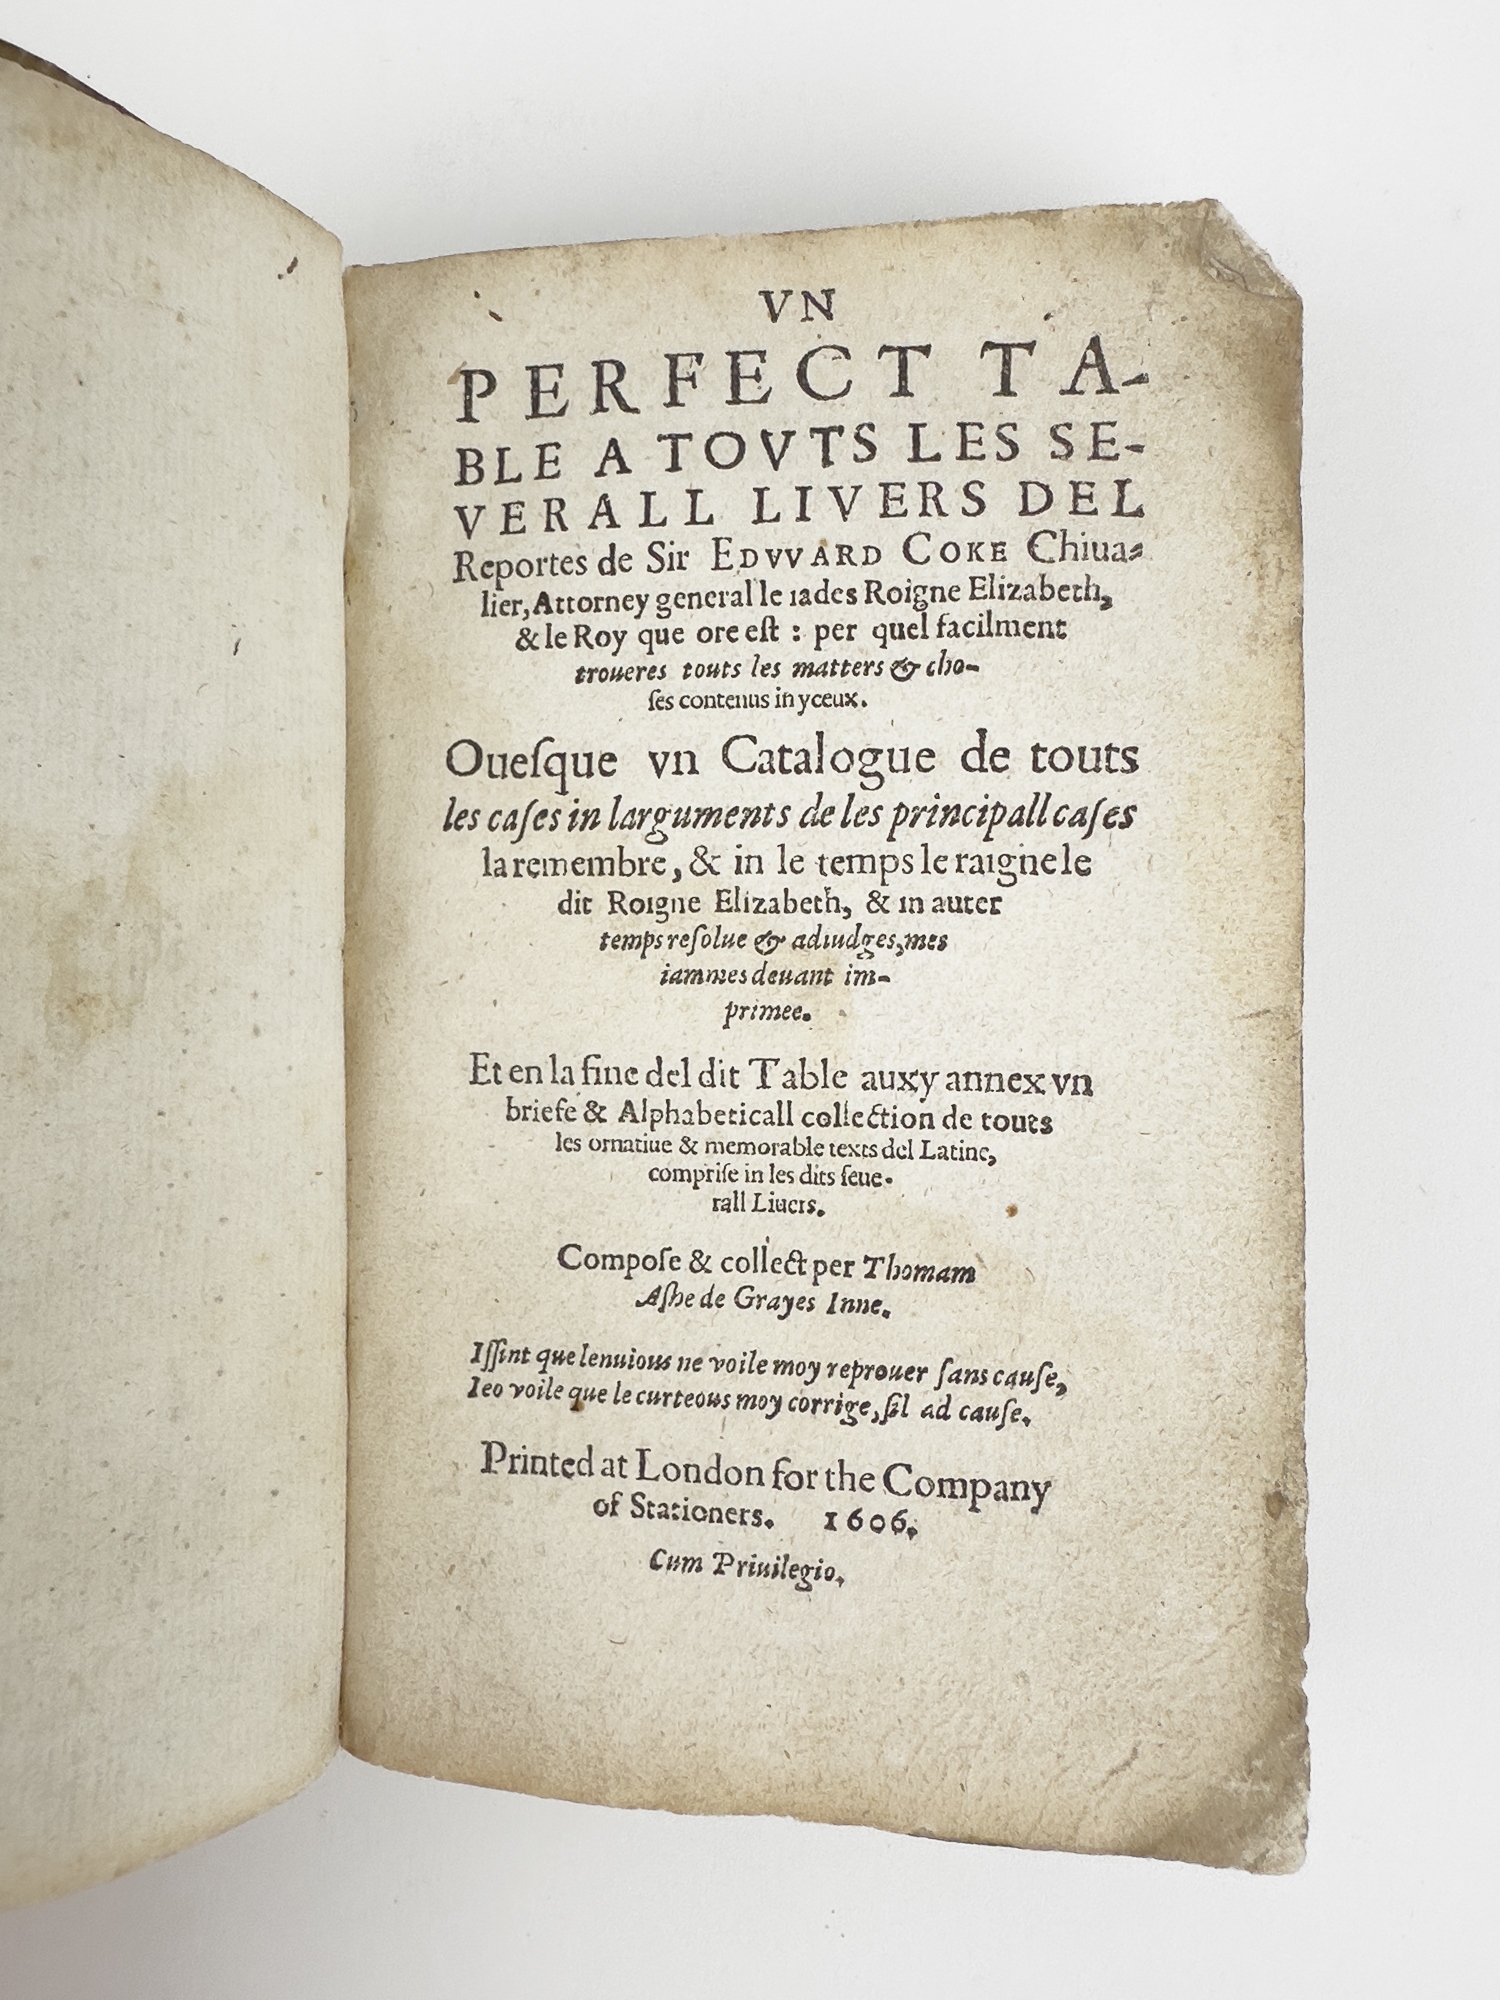 VN
PERFECT TA-
BLE A TOVTS LES SE-
VERALL LIVERS DEL
Reportes de Sir EDVVARD COKE Chiua-
lier, Attorney generall le iades Roigne Elizabeth,
& le Roy que ore est : per quel facilment
troueres touts les matters & cho-
ſes contenus in yceux.
Oueſque vn Catalogue de touts
les caſes in larguments de les principall caſes
la remembre, & in le temps le raigne le
dit Roigne Elizabeth, & in auter
temps reſolue & adiudges, mes
iammes deuant im-
primee.
Et en la fine del dit Table auxy annex vn
briefe & Alphabeticall collection de touts
les ornatiue & memorable texts del Latine,
compriſe in les dits ſeue-
rall Liuers.
Compoſe & collect per Thomam
Aſhe de Grayes Inne.
Iſſint que lenuious ne voile moy reprouer ſans cauſe,
Ieo voile que le curteous moy corrige, ſil ad cauſe.
Printed at London for the Company
of Stationers. 1606.
Cum Priuilegio.